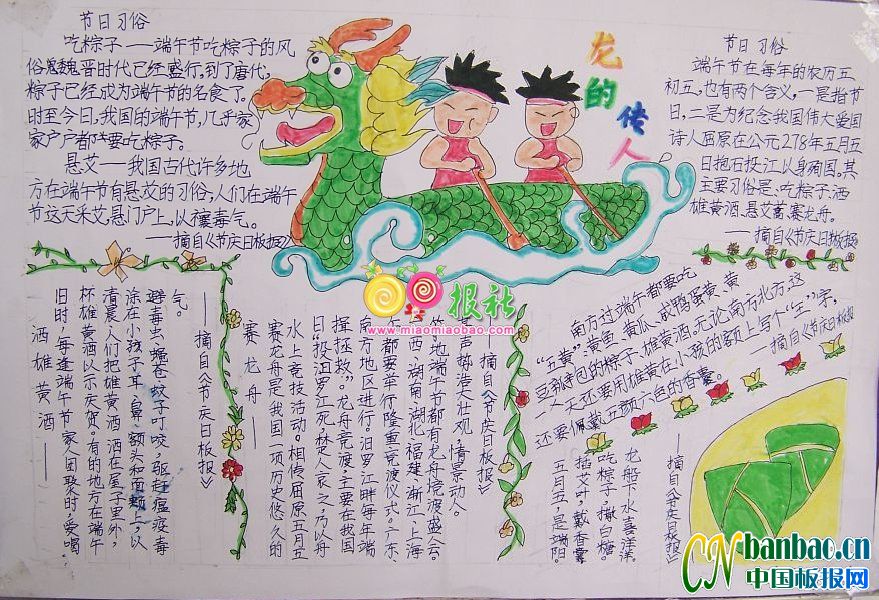 节日习俗
吃粽子——端午节吃粽子的风
俗魏晋时代已经盛行,到了唐代,
粽子已经成为端午节的名食了。
时至今日,我国的端午节,几乎家
家户户都要吃粽子。
悬艾——我国古代许多地
方在端午节有悬艾的习俗,人们在端午
节这天采艾悬门户上,以禳毒气。
——摘自《节庆日板报》
龙的传人
节日习俗
端午节在每年的农历五
初五,也有两个含义,一是指节
日,二是为纪念我国伟大爱国
诗人屈原在公元278年五月五
日抱石投江以身殉国,其
主要习俗是、吃粽子、洒
雄黄酒、悬艾蒿、赛龙舟。
——摘自《节庆日板报》
报社
www.miaomiaobao.com
洒雄黄酒——
旧时,每逢端午节家人团聚时,爱喝
杯雄黄酒以示庆贺,有的地方在端午
清晨,人们把雄黄酒洒在屋子里外,
涂在小孩子耳、鼻、额头和面颊上,以
避毒虫、蝇苍蚊子叮咬,驱赶瘟疫毒
气。
——摘自《节庆日板报》
赛龙舟——
赛龙舟是我国一项历史悠久的
水上竞技活动。相传屈原五月五
日“投汨罗江死,楚人哀之,乃以舟
楫拯救”。龙舟竞渡主要在我国
南方地区进行。汨罗江畔每年端
午都要举行隆重竞渡仪式。广东、
西、湖南、湖北、福建、浙江、上海
等地端午节都有龙舟竞渡盛会。
其声势浩大壮观,情景动人。
摘自《节庆日板报》
南方过端午都要吃
“五黄”:黄鱼、黄瓜、咸鸭蛋黄、黄
豆瓣包的粽子、雄黄酒。无论南方北方,这
一天还要用雄黄在小孩的额上写个“王”字,
还要佩戴五颜六色的香囊。
——摘自《节庆日板报》
五月五,是端阳。
插艾叶,戴香囊
吃粽子,撒白糖。
龙船下水喜洋洋。
——摘自《节庆日板报》
CN banbao.cn
中国板报网